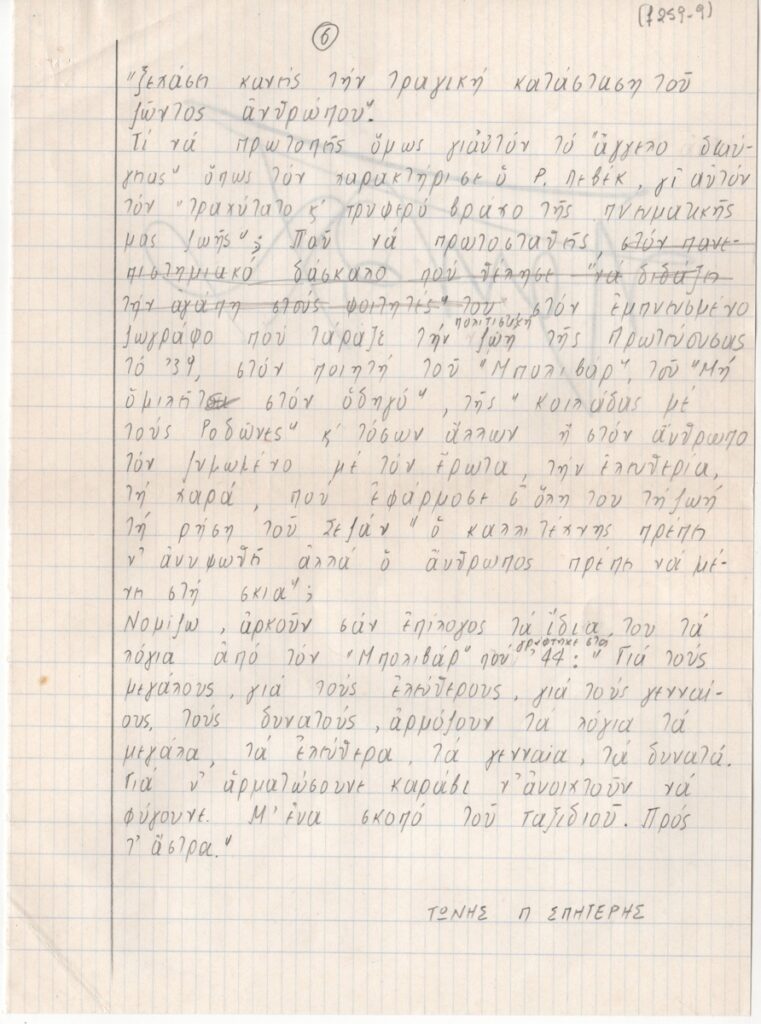 (7259-9)
6
"ξεχάσει κανείς τήν τραγική κατάσταση τοῦ
ζῶντος ἀνθρώπου".
Τί νά πρωτοπεῖς ὅμως γι'αὐτόν τό "ἄγγελο διαύ-
γειας" ὅπως τόν χαρακτήρισε ὁ Ρ. Λεβέκ, γι' αὐτόν
τόν "τραχύτατο κ' τρυφερό βράχο τῆς πνευματικῆς
μας ζωῆς"; Ποῦ νά πρωτοσταθεῖς, στόν πανε-
πιστημιακό δάσκαλο πού θέλησε "νά διδάξει
τήν ἀγάπη στούς φοιτητές" του στόν ἐμπνευσμένο
πολιτισμική
ζωγράφο πού τάραξε τήν ζωή τῆς Πρωτεύουσας
τό '39, στόν ποιητή τοῦ "Μπολιβάρ", τοῦ "Μή
ὁμιλεῖτε στόν ὁδηγό", τῆς "Κοιλάδας μέ
τούς Ροδῶνες" κ' τόσων ἄλλων ἤ στόν ἄνθρωπο
τόν ζυμωμένο μέ τόν ἔρωτα, τήν ἐλευθερία,
τή χαρά, πού ἐφάρμοσε σ' ὅλη του τή ζωή
τή ρήση τοῦ Σεζάν "ὁ καλλιτέχνης πρέπει
ν' ἀνυψωθεῖ ἀλλά ὁ ἄνθρωπος πρέπει νά μέ-
νει στή σκιά";
Νομίζω, ἀρκοῦν σάν ἐπίλογος τά ἴδια του τά
γράφτηκε στα
λόγια ἀπό τόν "Μπολιβάρ" πού '44: "Γιά τούς
μεγάλους, γιά τούς ἐλεύθερους, γιά τούς γενναί-
ους, τούς δυνατούς, ἁρμόζουν τά λόγια τά
μεγάλα, τά ἐλεύθερα, τά γενναῖα, τά δυνατά.
Γιά ν' ἁρματώσουνε καράβι ν'ἀνοιχτοῦν νά
φύγουνε. Μ' ἕνα σκοπό τοῦ ταξιδιοῦ. Πρός
τ' ἄστρα."
ΤΩΝΗΣ Π ΣΠΗΤΕΡΗΣ